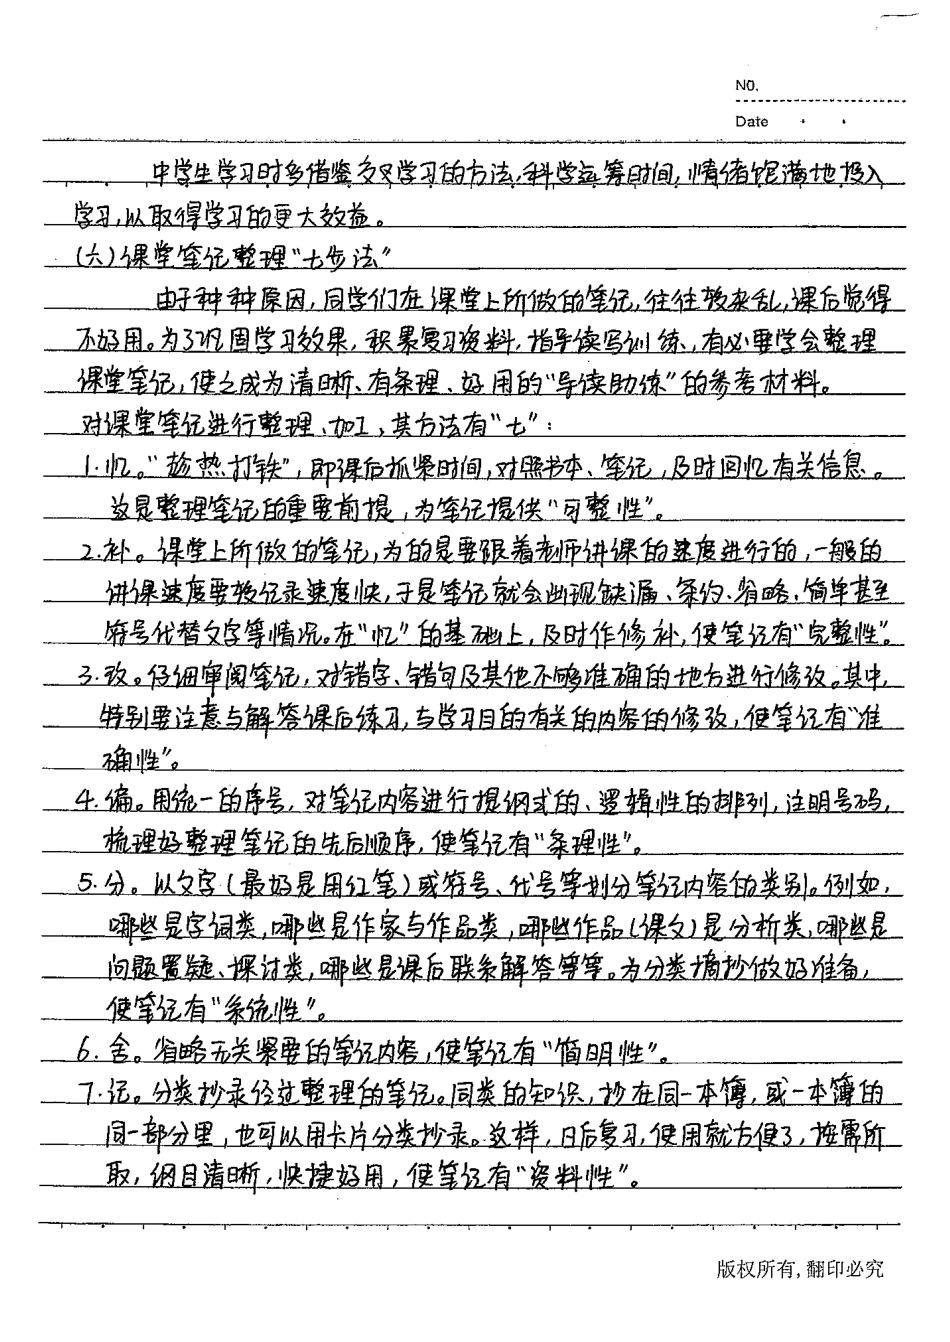 NO.
Date
中学生学习时多借鉴交叉学习的方法,科学运筹时间,情绪饱满地投入
学习,以取得学习的更大效益。
(六)课堂笔记整理“七步法”
由于种种原因,同学们在课堂上所做的笔记,往往较杂乱,课后觉得
不好用。为了巩固学习效果,积累复习资料,指导读写训练,有必要学会整理
课堂笔记,使之成为清晰、有条理、好用的“导读助练”的参考材料。
对课堂笔记进行整理、加工,其方法有“七”:
1.忆。“趁热打铁”,即课后抓紧时间,对照书本、笔记,及时回忆有关信息。
这是整理笔记的重要前提,为笔记提供“可整性”。
2.补。课堂上所做的笔记,为的是要跟着老师讲课的速度进行的,一般的
讲课速度要较记录速度快,于是笔记就会出现缺漏、条约、省略、简单甚至
符号代替文字等情况。在“忆”的基础上,及时作修补,使笔记有“完整性”。
3.改。仔细审阅笔记,对错字、错句及其他不够准确的地方进行修改。其中,
特别要注意与解答课后练习,与学习目的有关的内容的修改,使笔记有“准
确性”。
4.编。用统一的序号,对笔记内容进行提纲式的、逻辑性的排列,注明号码,
梳理好整理笔记的先后顺序,使笔记有“条理性”。
5.分。以文字(最好是用红笔)或符号、代号等划分笔记内容的类别。例如,
哪些是字词类,哪些是作家与作品类,哪些作品(课文)是分析类,哪些是
问题置疑、探讨类,哪些是课后联系解答等等。为分类摘抄做好准备,
使笔记有“系统性”。
6.舍。省略无关紧要的笔记内容,使笔记有“简明性”。
7.记。分类抄录经过整理的笔记。同类的知识,抄在同一本簿,或一本簿的
同一部分里,也可以用卡片分类抄录。这样,日后复习,使用就方便了,按需所
取,纲目清晰,快捷好用,使笔记有“资料性”。
版权所有,翻印必究